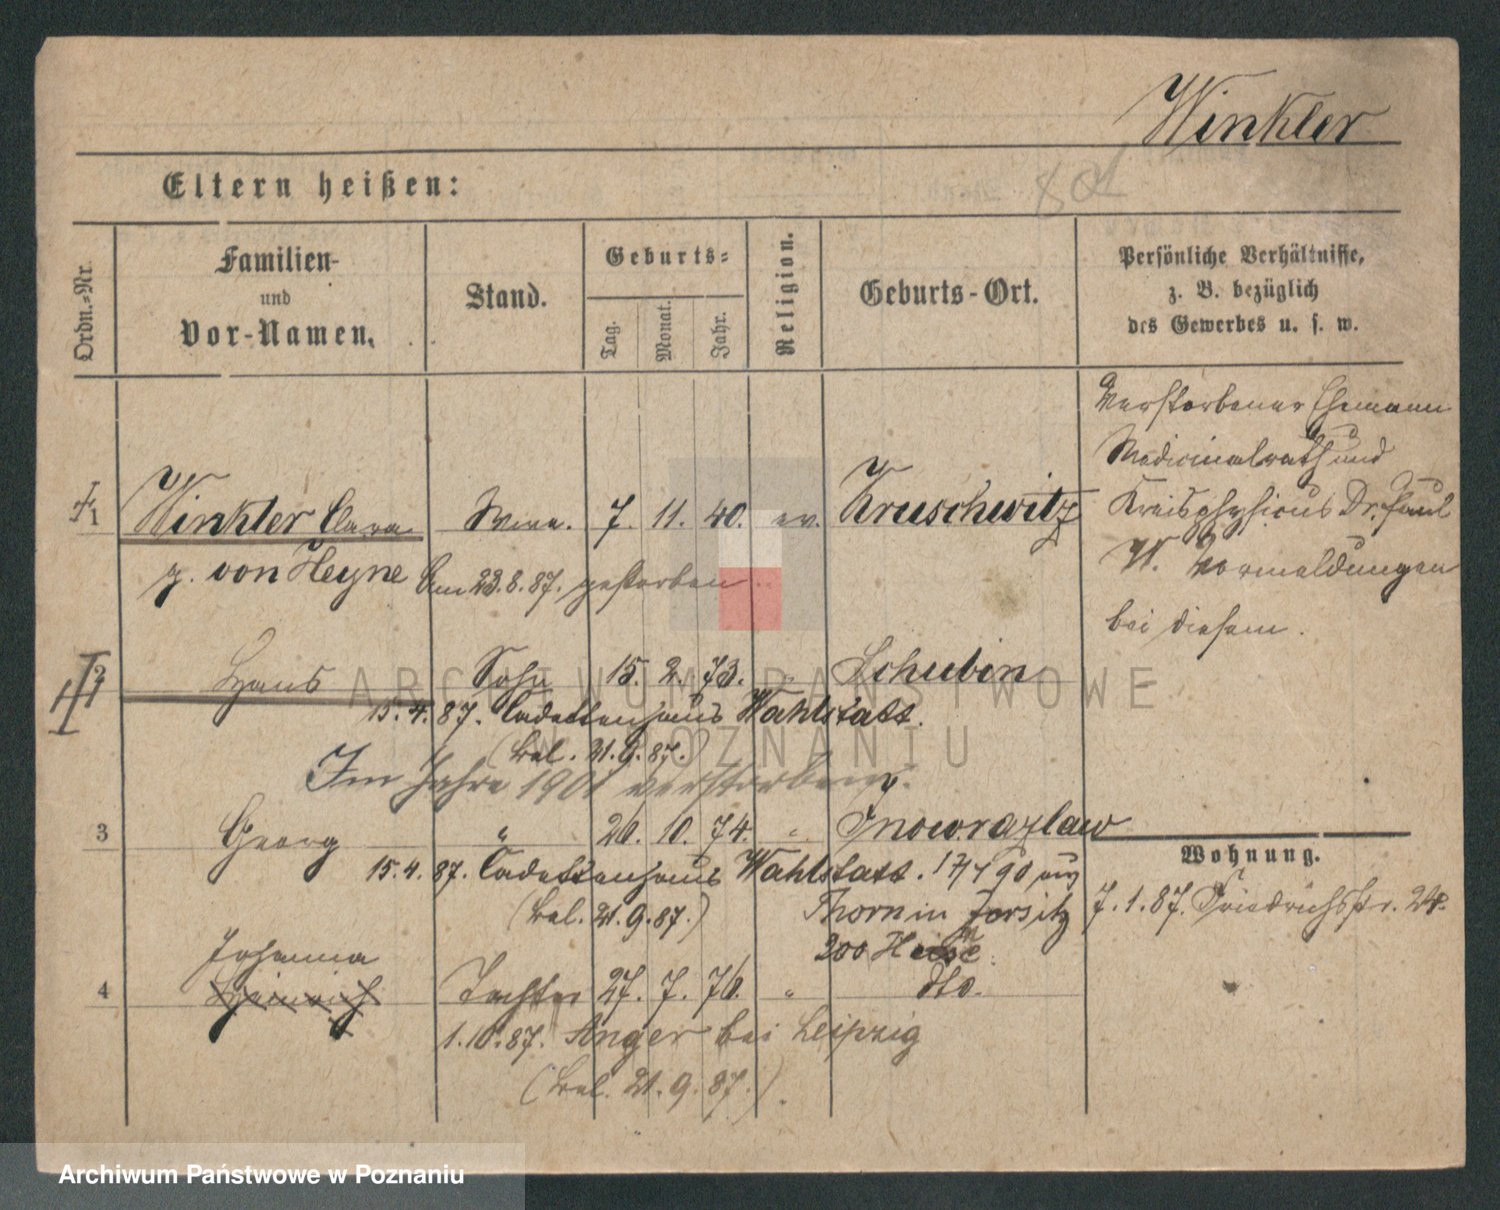 Winkler
Eltern heißen:
Ordn.-Nr.
Familien-
und
Vor-Namen.
Stand.
Geburts-
Tag.
Monat.
Jahr.
Religion.
Geburts-Ort.
Persönliche Verhältnisse,
z. B. bezüglich
des Gewerbes u. s. w.
Verstorbener Ehemann
Medicinalrath und
Kreisphysicus Dr. Paul
W. Vormeldungen
bei diesem.
1 Winkler Clara Wwe. 7. 11. 40. ev. Kruschwitz
g. von Heyne Am 23.8.87. gestorben
2 Hans Sohn 15. 2. 73. " Schubin
15.4.87. Cadettenhaus Wahlstatt.
(bel. 21.9.87.)
Im Jahre 1901 verstorben.
3 Georg " 20. 10. 74. " Inowrazlaw
15.4.87. Cadettenhaus Wahlstatt. 17/4 90 aus
(bel. 21.9.87.) Thorn in Jersitz
200
Wohnung.
7.1.87. Friedrichsstr. 24.
Johanna
4 Heinrich Tochter 27. 7. 76. " dto.
1.10.87. Anger bei Leipzig
(bel. 21.9.87.)
ARCHIWUM PAŃSTWOWE
W POZNANIU
Archiwum Państwowe w Poznaniu